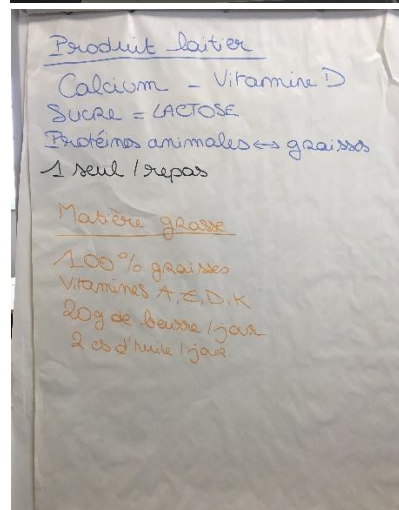 Produit laitier
Calcium - Vitamine D
SUCRE = LACTOSE
Protéines animales ↔ graisses
1 seul / repas
Matière grasse
100% graisses
Vitamines A, E, D, K
20g de beurre / jour
2 cs d'huile / jour